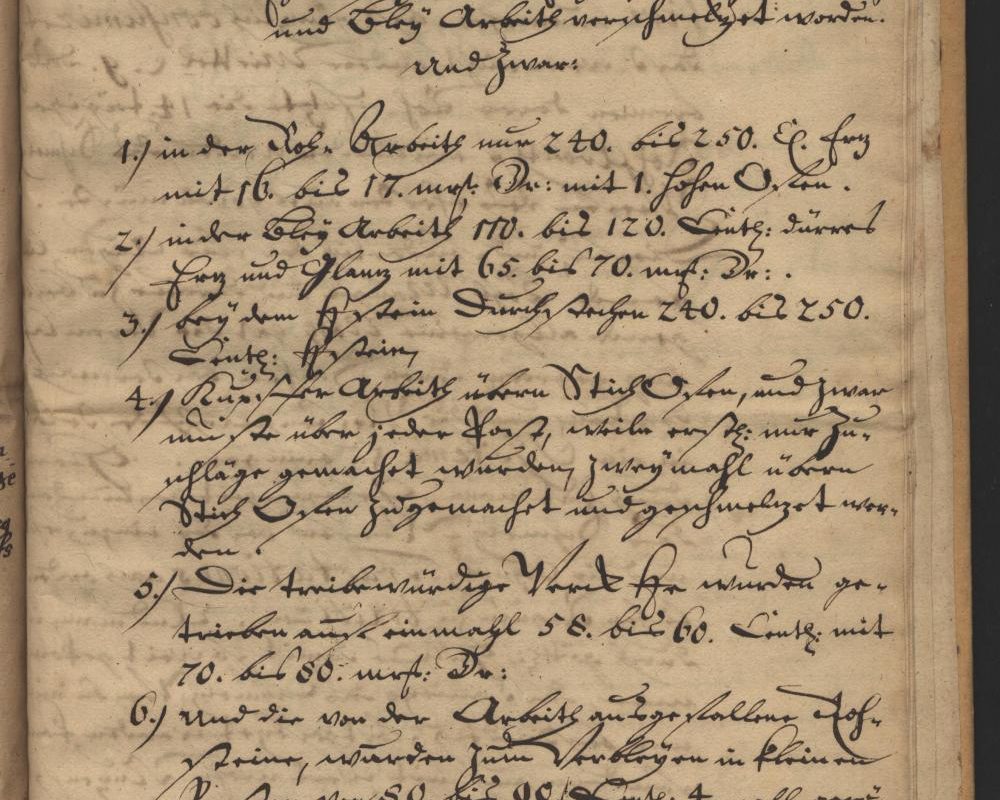 und Bleÿ Arbeith verschmeltzet worden.
und zwar:
1.) in der Roh- Arbeith nur 240. bis 250. C. Ertz
mit 16. bis 17. mrk: Sr: mit 1. hohen Ofen.
2.) in der Bleÿ Arbeith 110. bis 120. Centh: dürres
Ertz und Glantz mit 65. bis 70. mrk: Sr:.
3.) beÿ dem stein Durchstechen 240. bis 250.
Centh: stein,
4.) Kupffer Arbeith übern Stich Ofen, und zwar
muste über jeder Rost, weiln erstl: nur Zu-
schläge gemachet wurden, zweÿmahl übern
Stich Ofen zugemachet und geschmeltzet wer-
den.
5.) Die treibewürdige Werck wurden ge-
trieben auff einmahl 58. bis 60. Centh: mit
70. bis 80. mrk: Sr:
6.) Und die von der Arbeith ausgefallene Roh-
steine, wurden zum Verbleÿen in kleinen
von 80. bis 90. Centh: 4. mahl